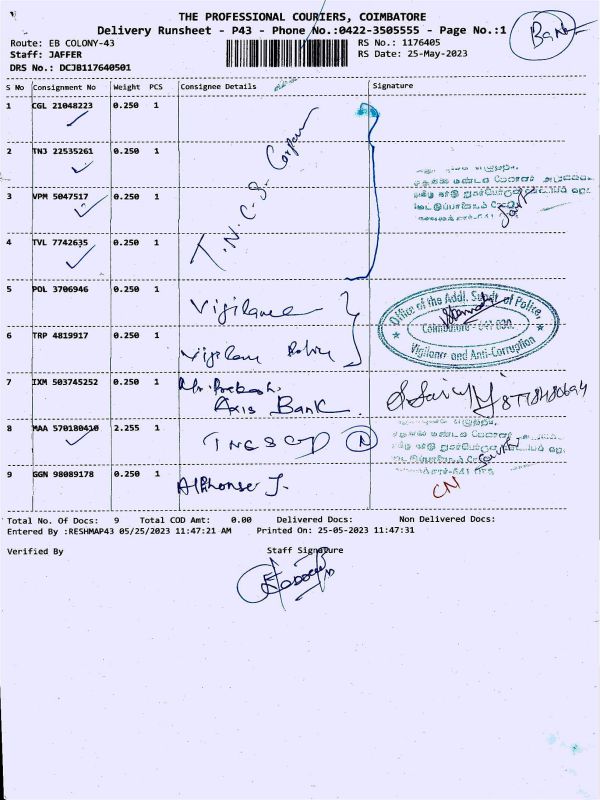 THE PROFESSIONAL COURIERS, COIMBATORE
Delivery Runsheet - P43 - Phone No.:0422-3505555 - Page No.:1
Bank
Route: EB COLONY-43
RS No.: 1176405
Staff: JAFFER
RS Date: 25-May-2023
DRS No.: DCJB117640501
S No Consignment No Weight PCS Consignee Details Signature
1 CGL 21048223 0.250 1
2 TNJ 22535261 0.250 1
3 VPM 5047517 0.250 1
4 TVL 7742635 0.250 1
T.N.C.S.
5 POL 3706946 0.250 1 Vigilance
6 TRP 4819917 0.250 1 Vigilance
Office of the Addl. Supdt. of Police,
Coimbatore - 641 030.
Vigilance and Anti-Corruption
7 IXM 503745252 0.250 1 Mr. Prakash,
Axis Bank
8 MAA 570180410 2.255 1
9 GGN 98089178 0.250 1 Alphonse J.
CN
Total No. Of Docs: 9 Total COD Amt: 0.00 Delivered Docs: Non Delivered Docs:
Entered By :RESHMAP43 05/25/2023 11:47:21 AM Printed On: 25-05-2023 11:47:31
Verified By Staff Signature